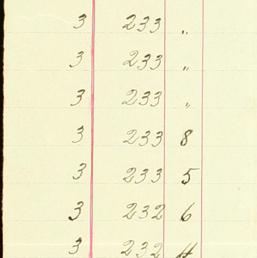 3 233 "
3 233 "
3 233 "
3 233 8
3 233 5
3 232 6
3 232 4